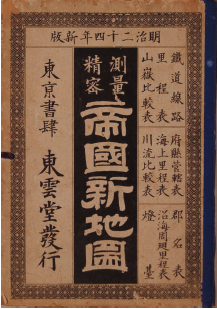 明治二十四年新版
鐵道線路 府縣管轄表 郡名表
里程表 海上里程表 沿海周廻里程表
山嶽比較表 川流比較表 燈臺
測量精密
帝國新地圖
東京書肆 東雲堂發行